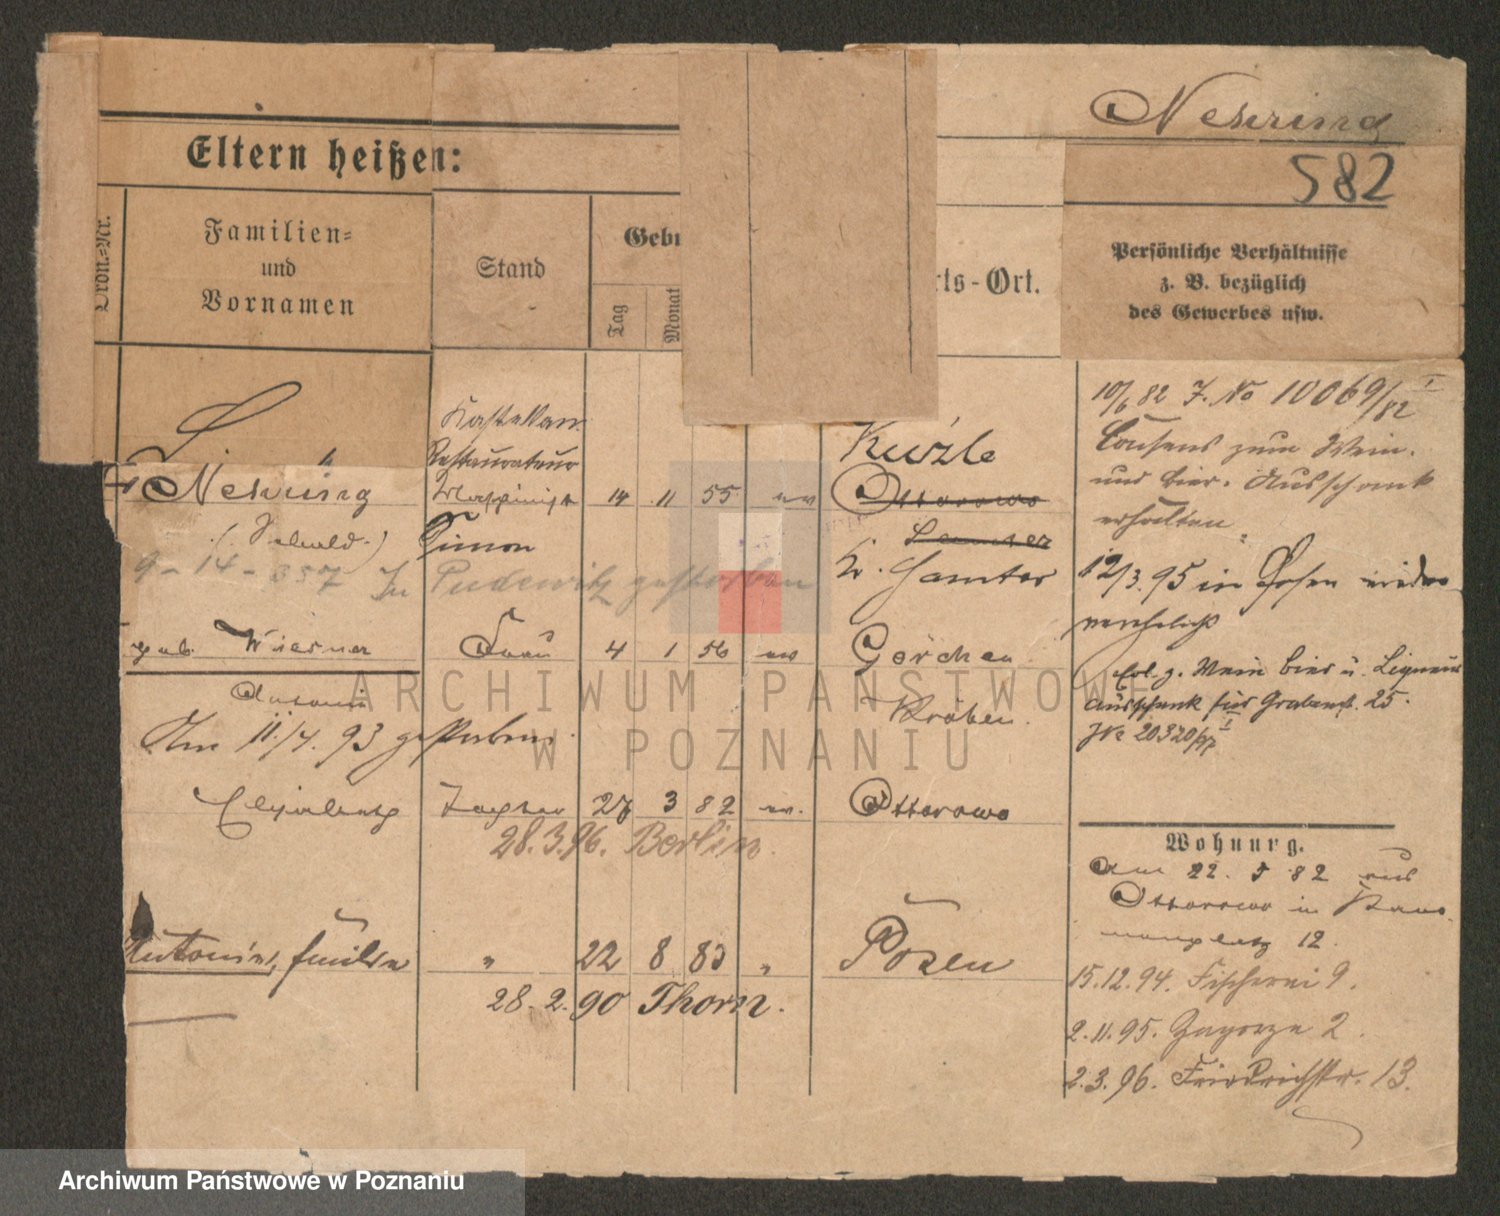 Nehring
582
Eltern heißen:
Ordn.-Nr.
Familien-
und
Vornamen
Stand
Tag
Monat
rts-Ort.
Persönliche Verhältnisse
z. B. bezüglich
des Gewerbes usw.
10/6 82 J. No 10069/82 I
Consens zum Wein-
und Bier-Ausschank
erhalten
12/3. 95 in Posen wieder
verehelicht
Erl. z. Wein Bier u. Liqueur
Ausschank für Grabenst. 25.
Kastellan
Restaurateur
Nehring
14 11 55 ev
Kuźle
Ottorowo
Simon
Kr. Samter
9 - 14 - 357 In Pudewitz gestorben
geb. Wiesner Frau 4 1 56 ev Görchen
Antonie
Kröben.
Am 11./4. 93 gestorben.
Elisabeth Tochter 27 3 82 ev. Ottorowo
28. 3. 96. Berlin.
Antonie, Emilie " 22 8 83 " Posen
28. 2. 90 Thorn.
Wohnung.
Am 22. 5 82 aus
Ottorowo in
12.
15. 12. 94. Fischerei 9.
2. 11. 95. Zagorze 2.
2. 3. 96. Friedrichstr. 13.
ARCHIWUM PAŃSTWOWE
W POZNANIU
Archiwum Państwowe w Poznaniu